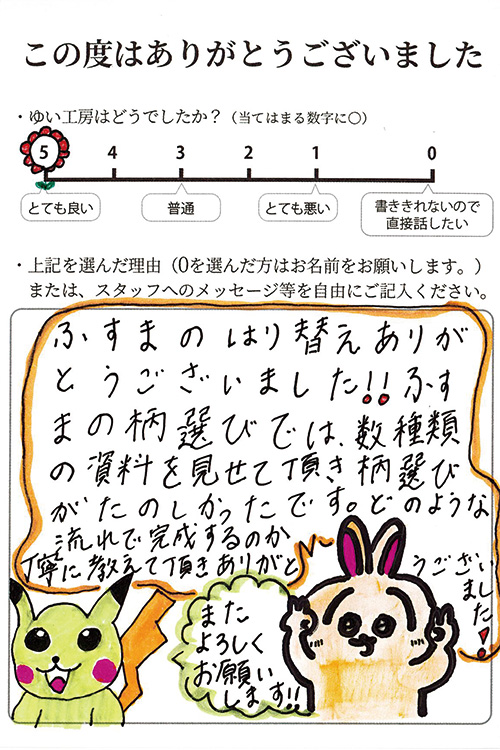 この度はありがとうございました
・ゆい工房はどうでしたか？（当てはまる数字に○）
5 4 3 2 1 0
とても良い 普通 とても悪い 書ききれないので
直接話したい
・上記を選んだ理由（0を選んだ方はお名前をお願いします。）
または、スタッフへのメッセージ等を自由にご記入ください。
ふすまのはり替えありが
とうございました!!ふす
まの柄選びでは、数種類
の資料を見せて頂き柄選び
がたのしかったです。どのような
流れで完成するのか
丁寧に教えて頂きありがと
うござい
ました!
また
よろしく
お願い
します!!